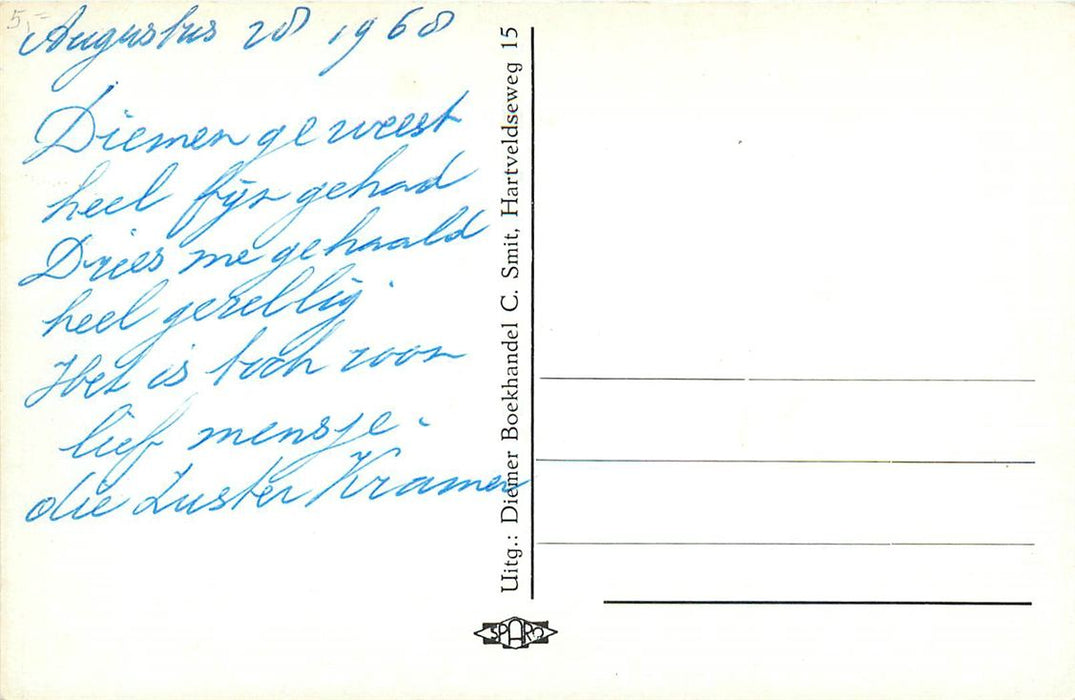 5,-
Augustus 28 1968
Diemen geweest
heel fijn gehad
Dries me gehaald
heel gezellig.
Het is toch zoon
lief mensje.
die Zuster Kramer
Uitg.: Diemer Boekhandel C. Smit, Hartveldseweg 15
SPARO